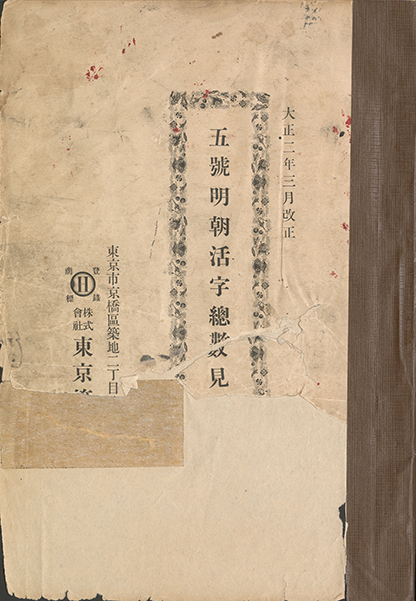 大正二年三月改正
五號明朝活字總數見
東京市京橋區築地二丁目
登錄
商標
株式
會社
東京